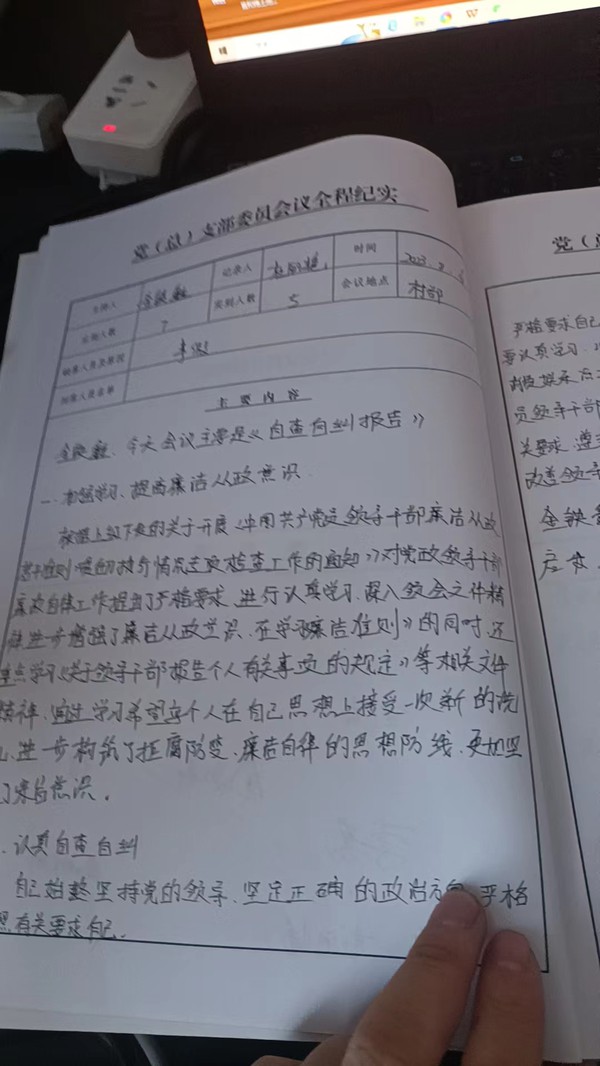 党（总）支部委员会议全程纪实
主持人 记录人 时间 2023.2.
应到人数 7 实到人数 5 会议地点 村部
缺席人员及原因
列席人员名单
主要内容
今天会议主要是《自查自纠报告》
一、加强学习、提高廉洁从政意识
根据上级下发的关于开展《中国共产党党员领导干部廉洁从政
若干准则》贯彻执行情况专项检查工作的通知》对党政领导干部
廉洁自律工作提出了严格要求，进行认真学习，深入领会文件精
神，进一步增强了廉洁从政意识，在学习《廉洁准则》的同时，还
重点学习《关于领导干部报告个人有关事项的规定》等相关文件
精神，通过学习希望每个人在自己思想上接受一次新的洗
礼，进一步构筑了拒腐防变、廉洁自律的思想防线，更加坚
了廉洁意识。
、认真自查自纠
自己始终坚持党的领导、坚定正确的政治方向，严格
照有关要求自己。
党（总
严格要求自己
要认真学习
员领导干部
关要求
改善领导